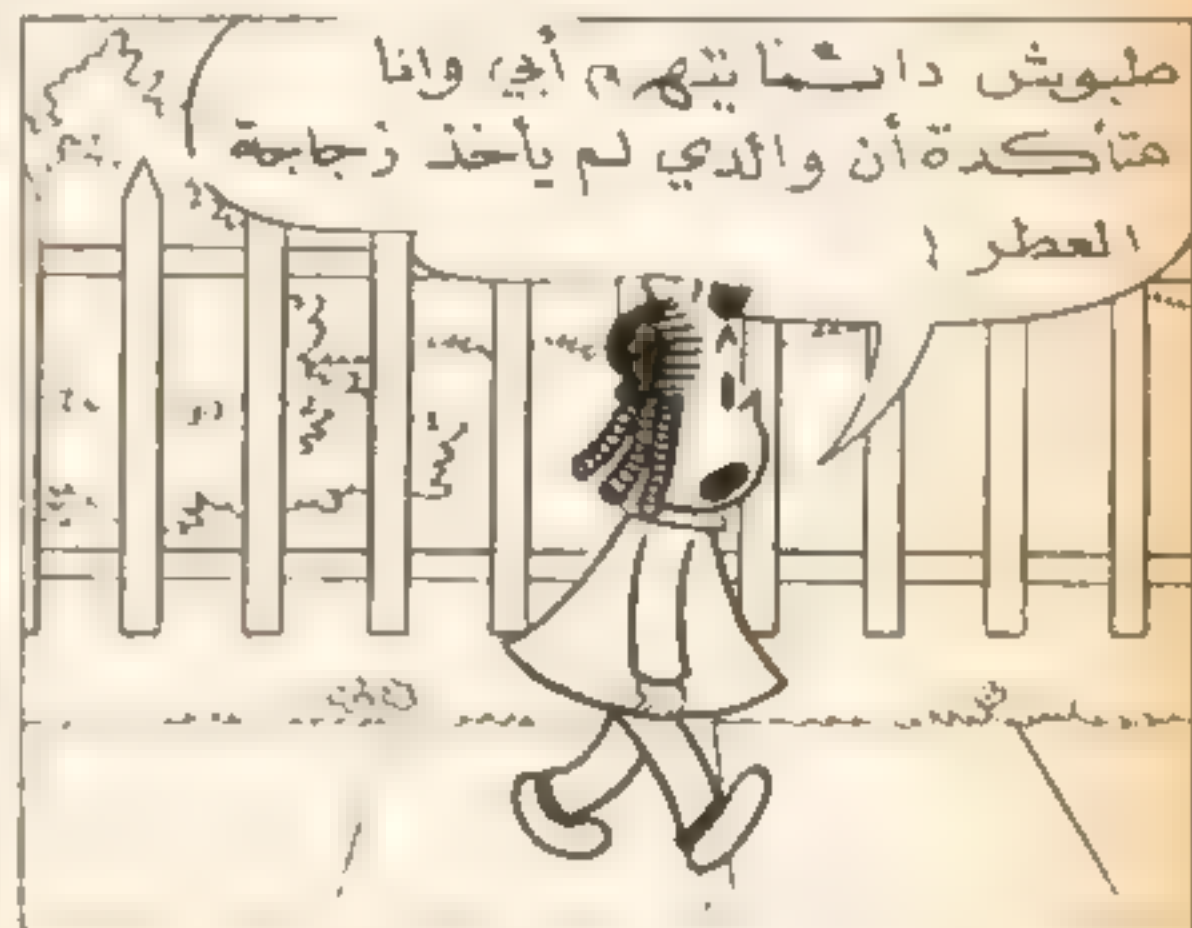 طبوش دائما يتهم أبي وانا
متأكدة أن والدي لم يأخذ زجاجة
العطر !